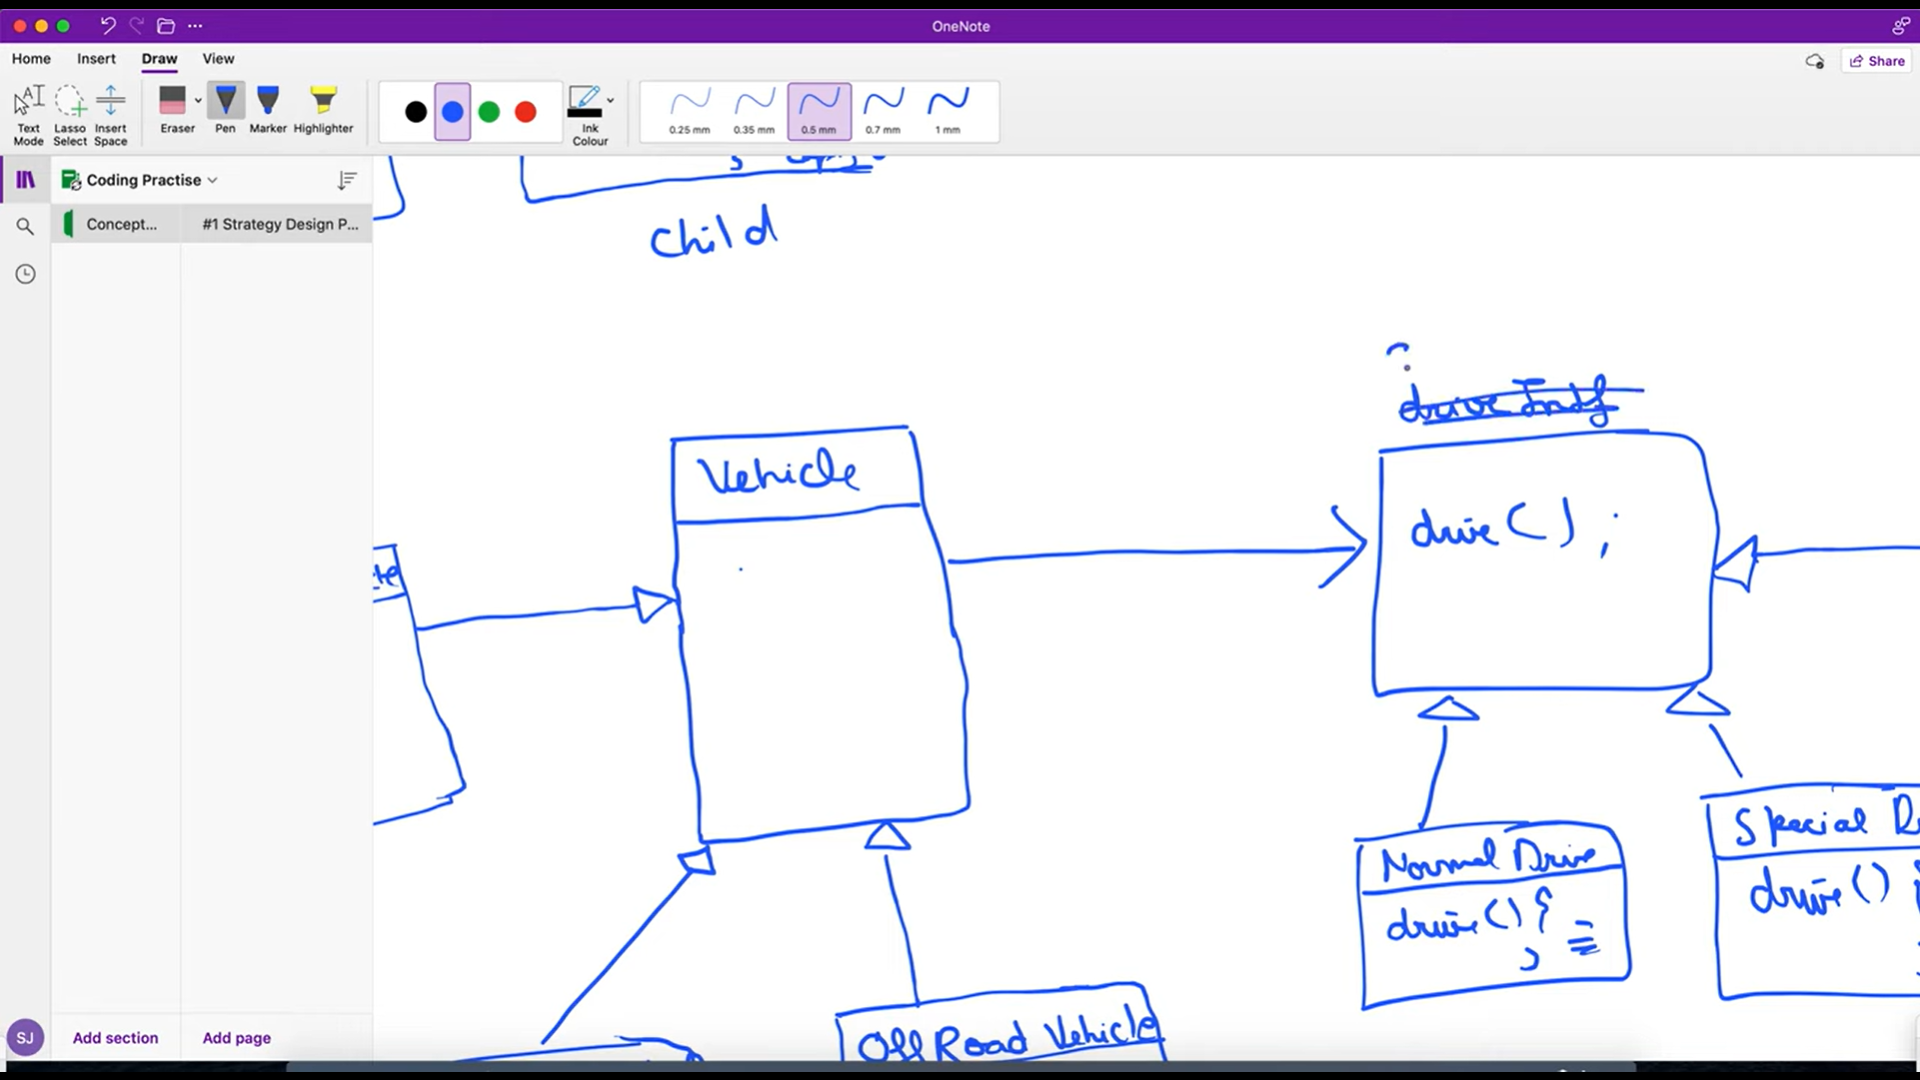 OneNote
Home Insert Draw View
Share
Text Mode
Lasso Select
Insert Space
Eraser
Pen
Marker
Highlighter
Ink Colour
0.25 mm
0.35 mm
0.5 mm
0.7 mm
1 mm
Coding Practise
Concept...
#1 Strategy Design P...
Child
drive Intf
Vehicle
drive() ;
te
Normal Drive
drive() {
}
Special D
drive()
Off Road Vehicle
SJ
Add section
Add page